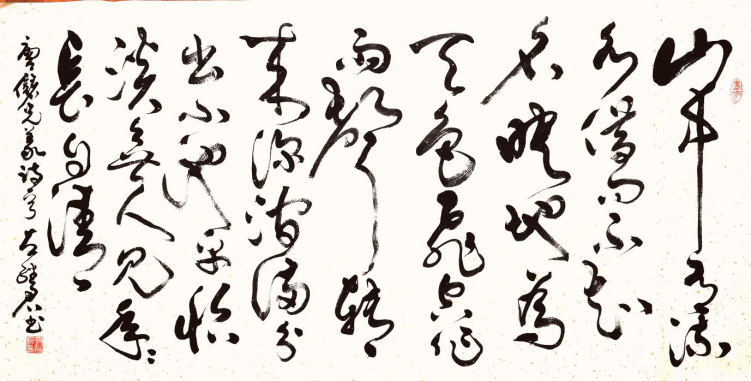 山中有流
水借問不知
名映地為
天色飛空作
雨聲轉
來深澗滿分
出小池平恬
淡無人見年々
長自清
唐儲光羲詩 書